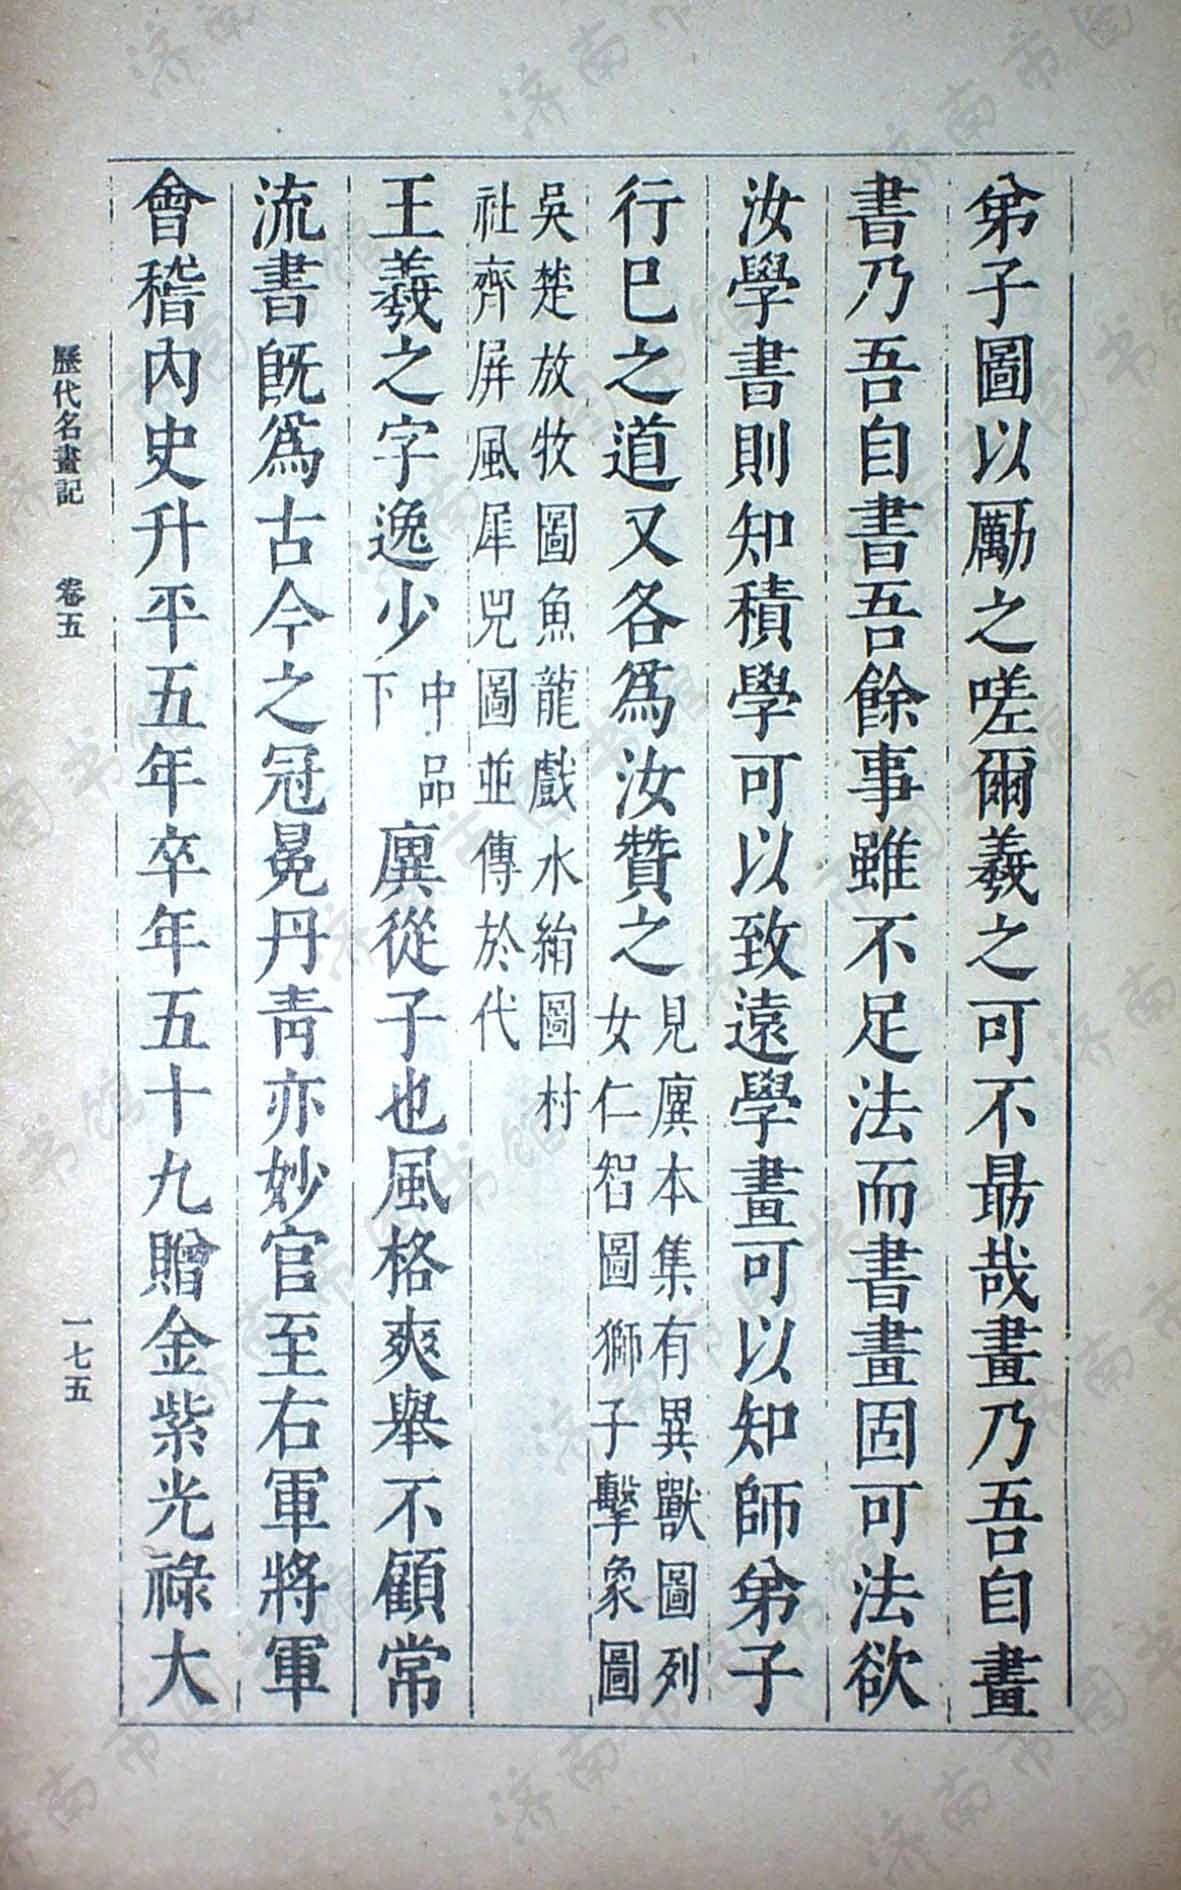 弟子圖以勵之嗟爾羲之可不勗哉畫乃吾自畫
書乃吾自書吾餘事雖不足法而書畫固可法欲
汝學書則知積學可以致遠學畫可以知師弟子
行已之道又各爲汝贊之見廙本集有異獸圖列
女仁智圖獅子擊象圖
吳楚放牧圖魚龍戲水絹圖村
社齊屏風犀兕圖並傳於代
王羲之字逸少中品
下廙從子也風格爽舉不顧常
流書旣爲古今之冠冕丹青亦妙官至右軍將軍
會稽內史升平五年卒年五十九贈金紫光祿大
歷代名畫記 卷五 一七五
济南市图书馆